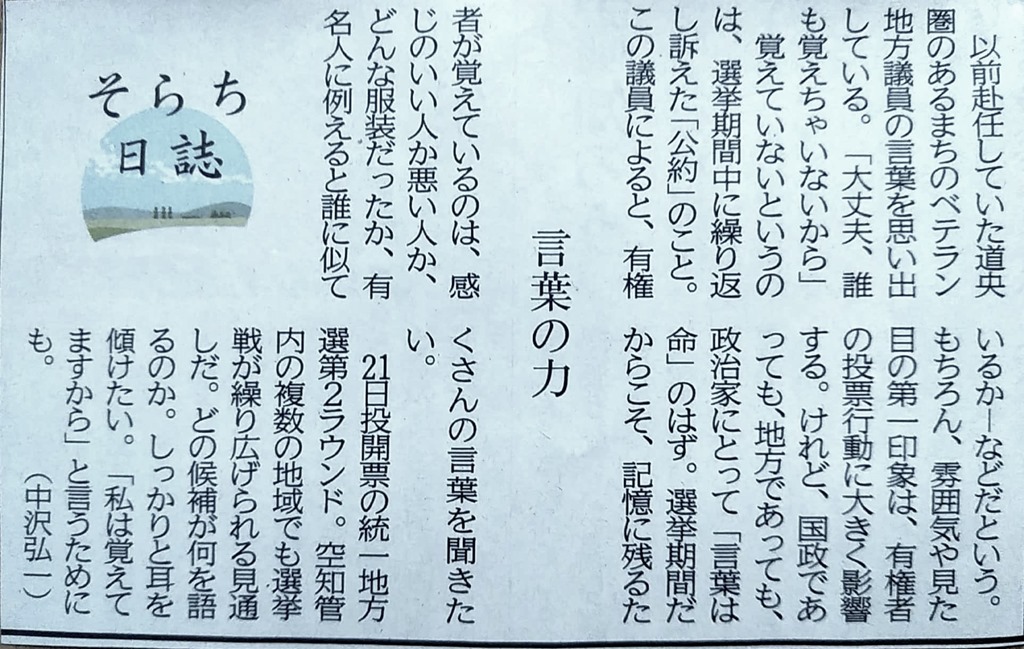 そらち
日誌
言葉の力
以前赴任していた道央
圏のあるまちのベテラン
地方議員の言葉を思い出
している。「大丈夫、誰
も覚えちゃいないから」
覚えていないというの
は、選挙期間中に繰り返
し訴えた「公約」のこと。
この議員によると、有権
者が覚えているのは、感
じのいい人か悪い人か、
どんな服装だったか、有
名人に例えると誰に似て
いるか―などだという。
もちろん、雰囲気や見た
目の第一印象は、有権者
の投票行動に大きく影響
する。けれど、国政であ
っても、地方であっても、
政治家にとって「言葉は
命」のはず。選挙期間だ
からこそ、記憶に残るた
くさんの言葉を聞きた
い。
21日投開票の統一地方
選第2ラウンド。空知管
内の複数の地域でも選挙
戦が繰り広げられる見通
しだ。どの候補が何を語
るのか。しっかりと耳を
傾けたい。「私は覚えて
ますから」と言うために
も。
(中沢弘一)